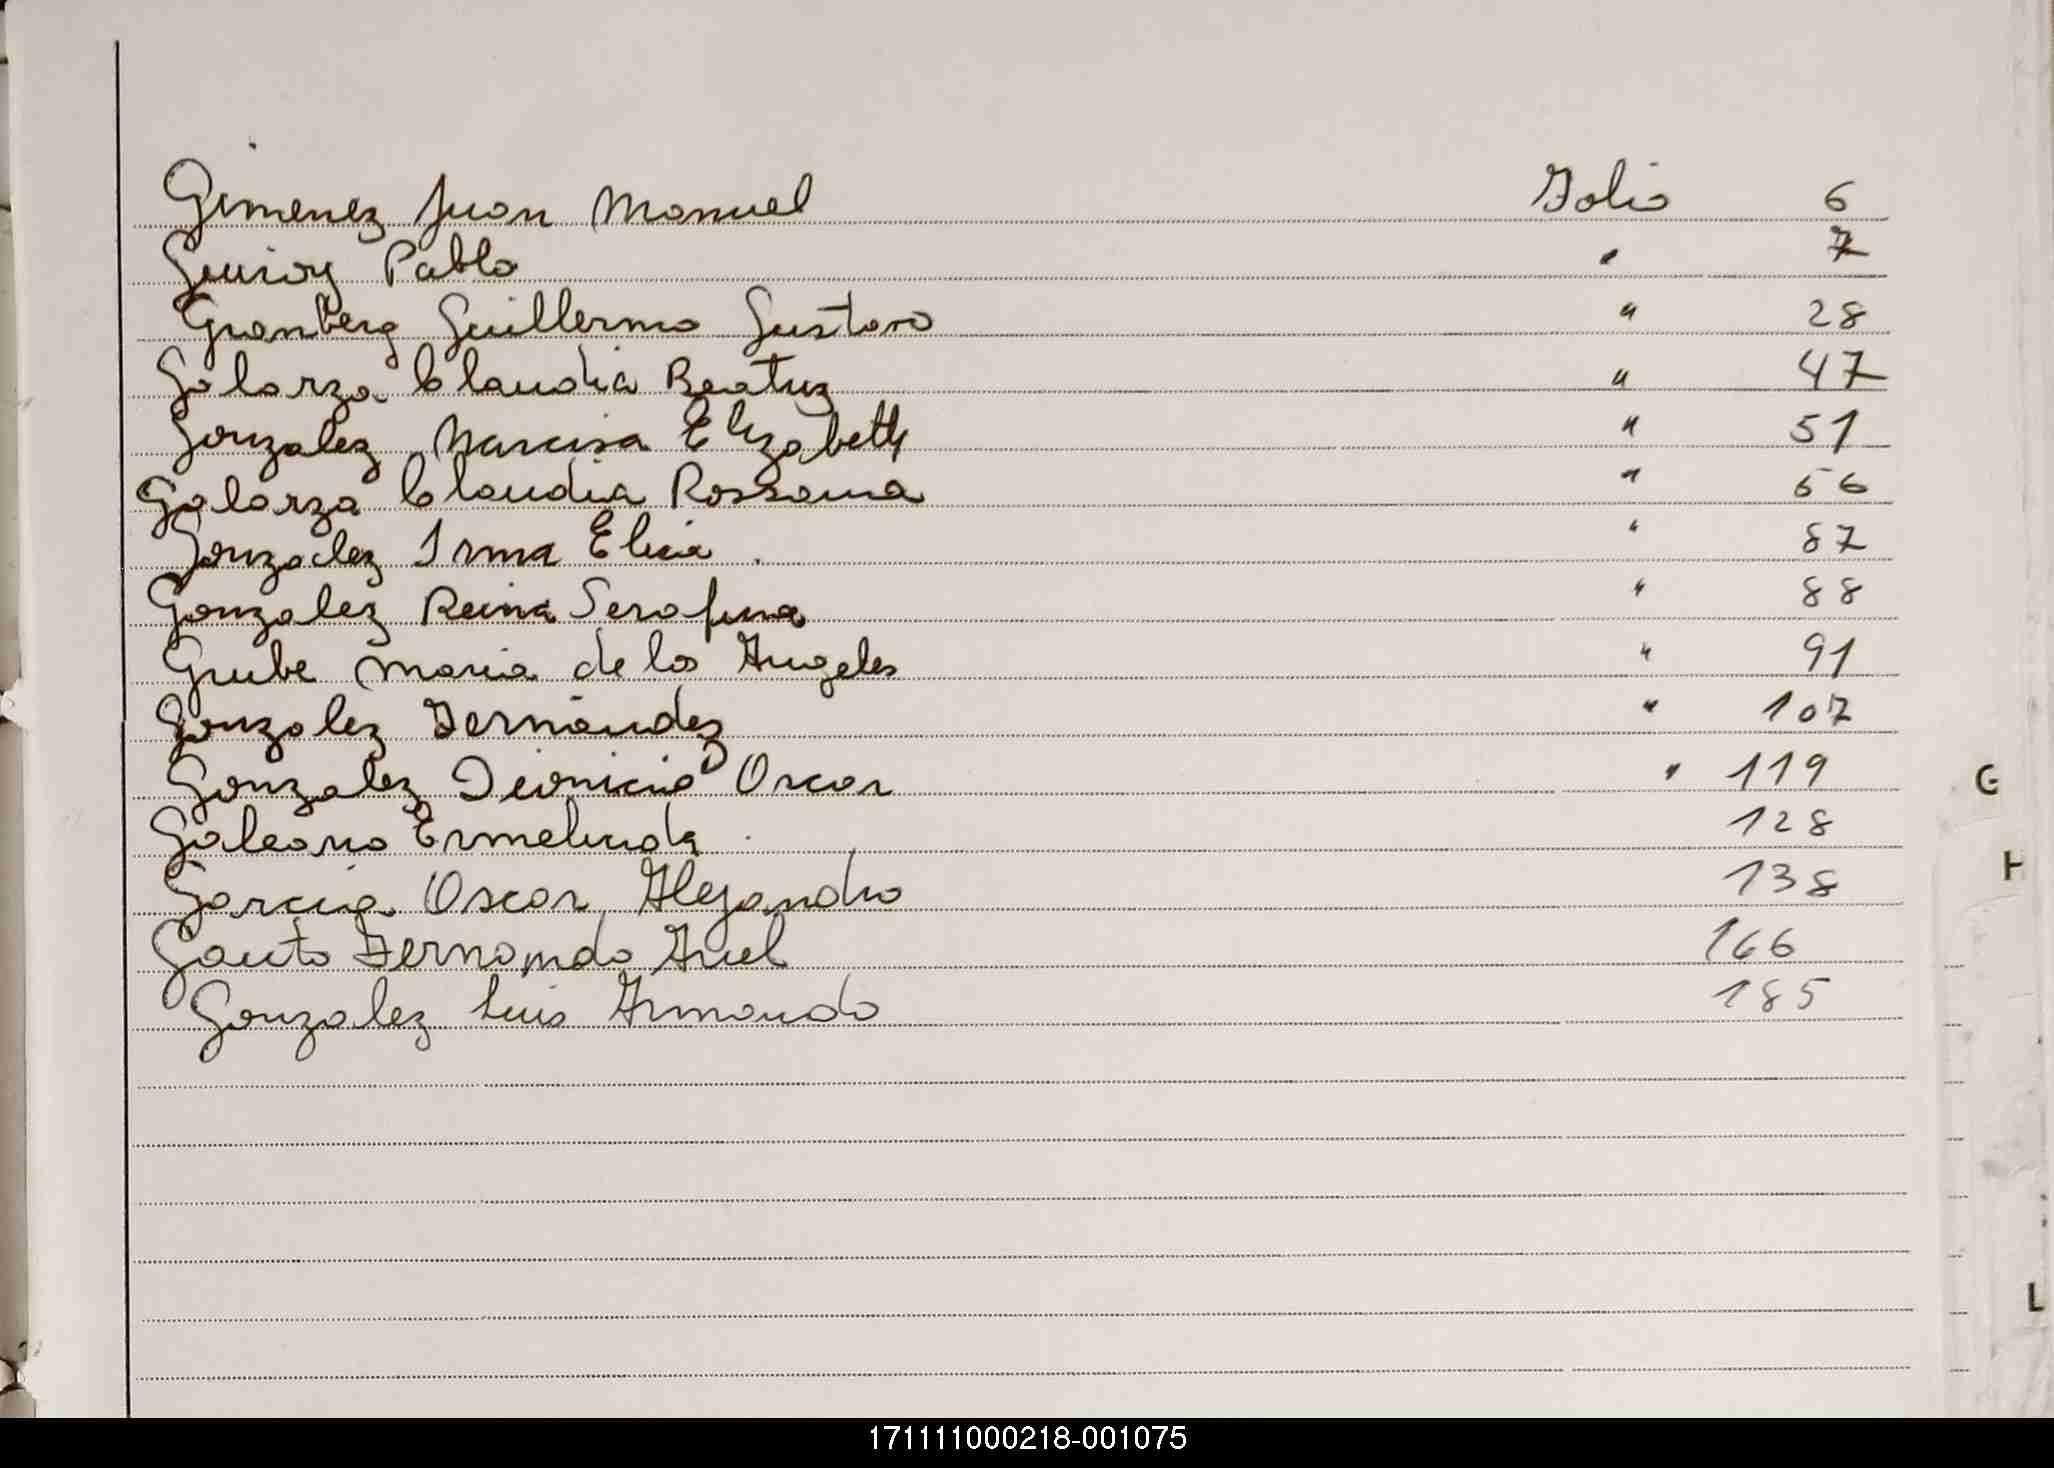 Gimenez Juan Manuel Folio 6
Pablo " 7
Granberg Guillermo Gustavo " 28
Galarza Claudia Beatriz " 47
Gonzalez Narcisa Elizabeth " 51
Galarza Claudia Rossana " 56
Gonzalez Irma Elisa " 87
Gonzalez Reina Serafina " 88
Grube Maria de los Angeles " 91
Gonzalez Fernandez " 107
Gonzalez Dionicio Oscar " 119
Galeano Ermelinda 128
Garcia Oscar Alejandro 138
Gauto Fernando Ariel 166
Gonzalez Luis Armando 185
G
H
L
171111000218-001075